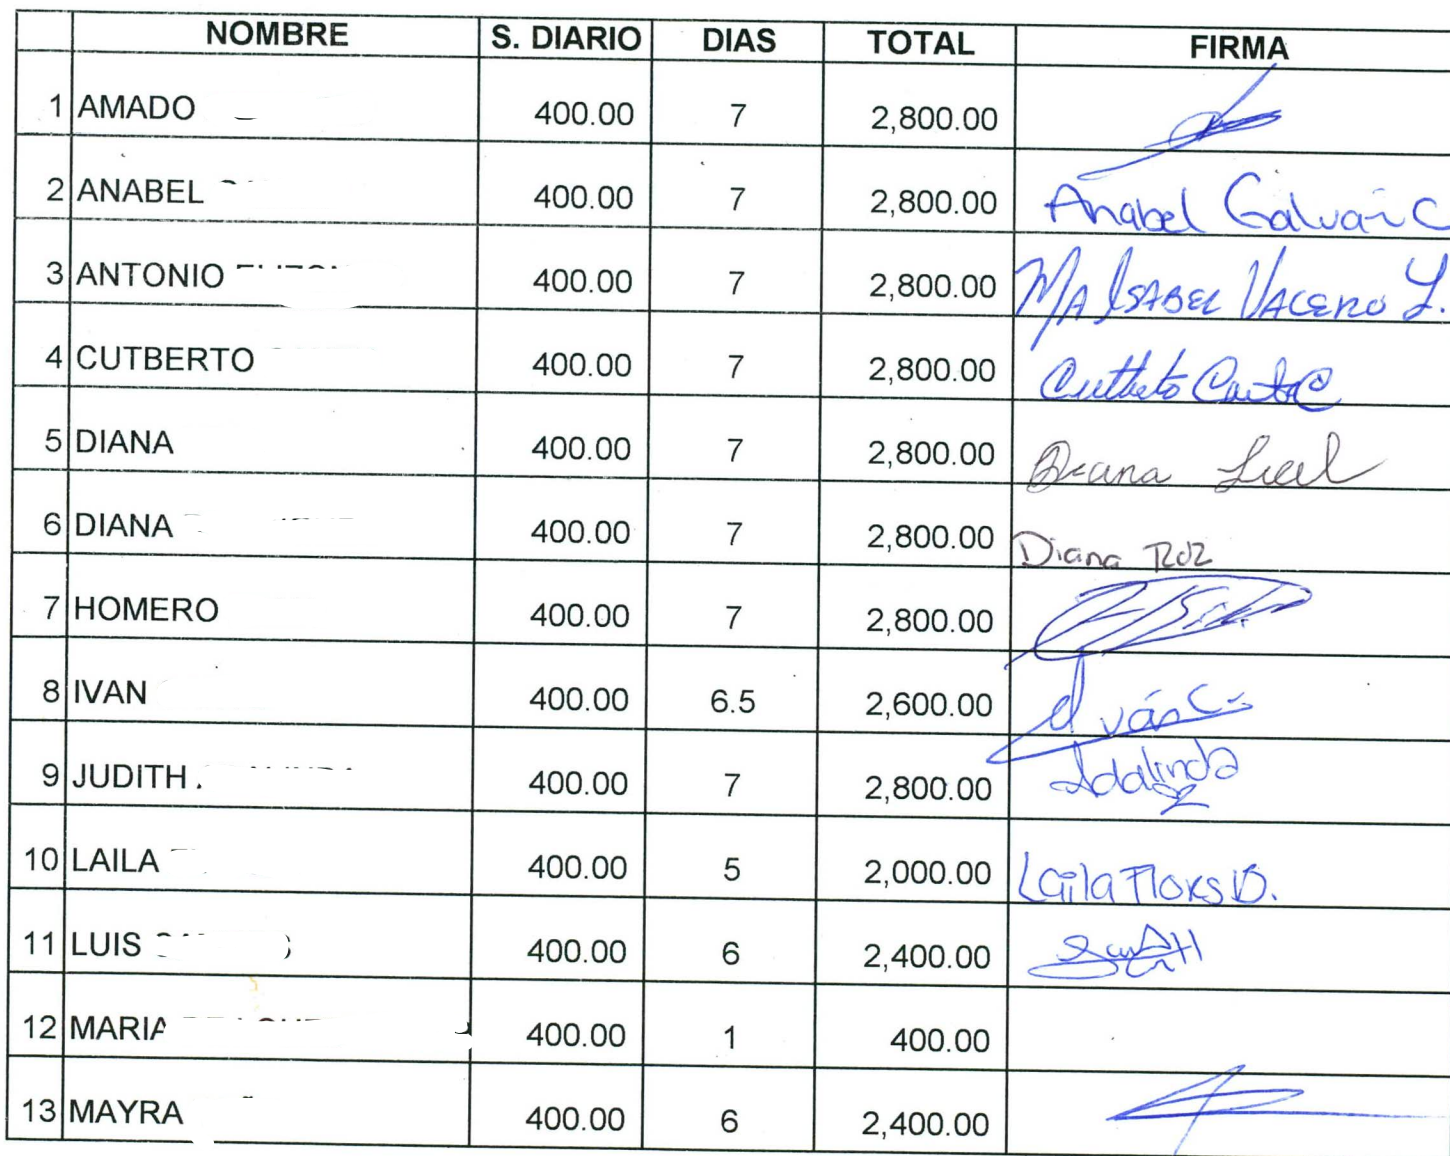 NOMBRE S. DIARIO DIAS TOTAL FIRMA
1 AMADO 400.00 7 2,800.00
2 ANABEL 400.00 7 2,800.00 Anabel Galván C
3 ANTONIO 400.00 7 2,800.00 MA ISABEL VACERO L.
4 CUTBERTO 400.00 7 2,800.00
5 DIANA 400.00 7 2,800.00 Diana Leal
6 DIANA 400.00 7 2,800.00 Diana Rdz
7 HOMERO 400.00 7 2,800.00
8 IVAN 400.00 6.5 2,600.00 Iván C.
9 JUDITH 400.00 7 2,800.00 Idalinda
10 LAILA 400.00 5 2,000.00 Laila Flores D.
11 LUIS 400.00 6 2,400.00
12 MARIA 400.00 1 400.00
13 MAYRA 400.00 6 2,400.00